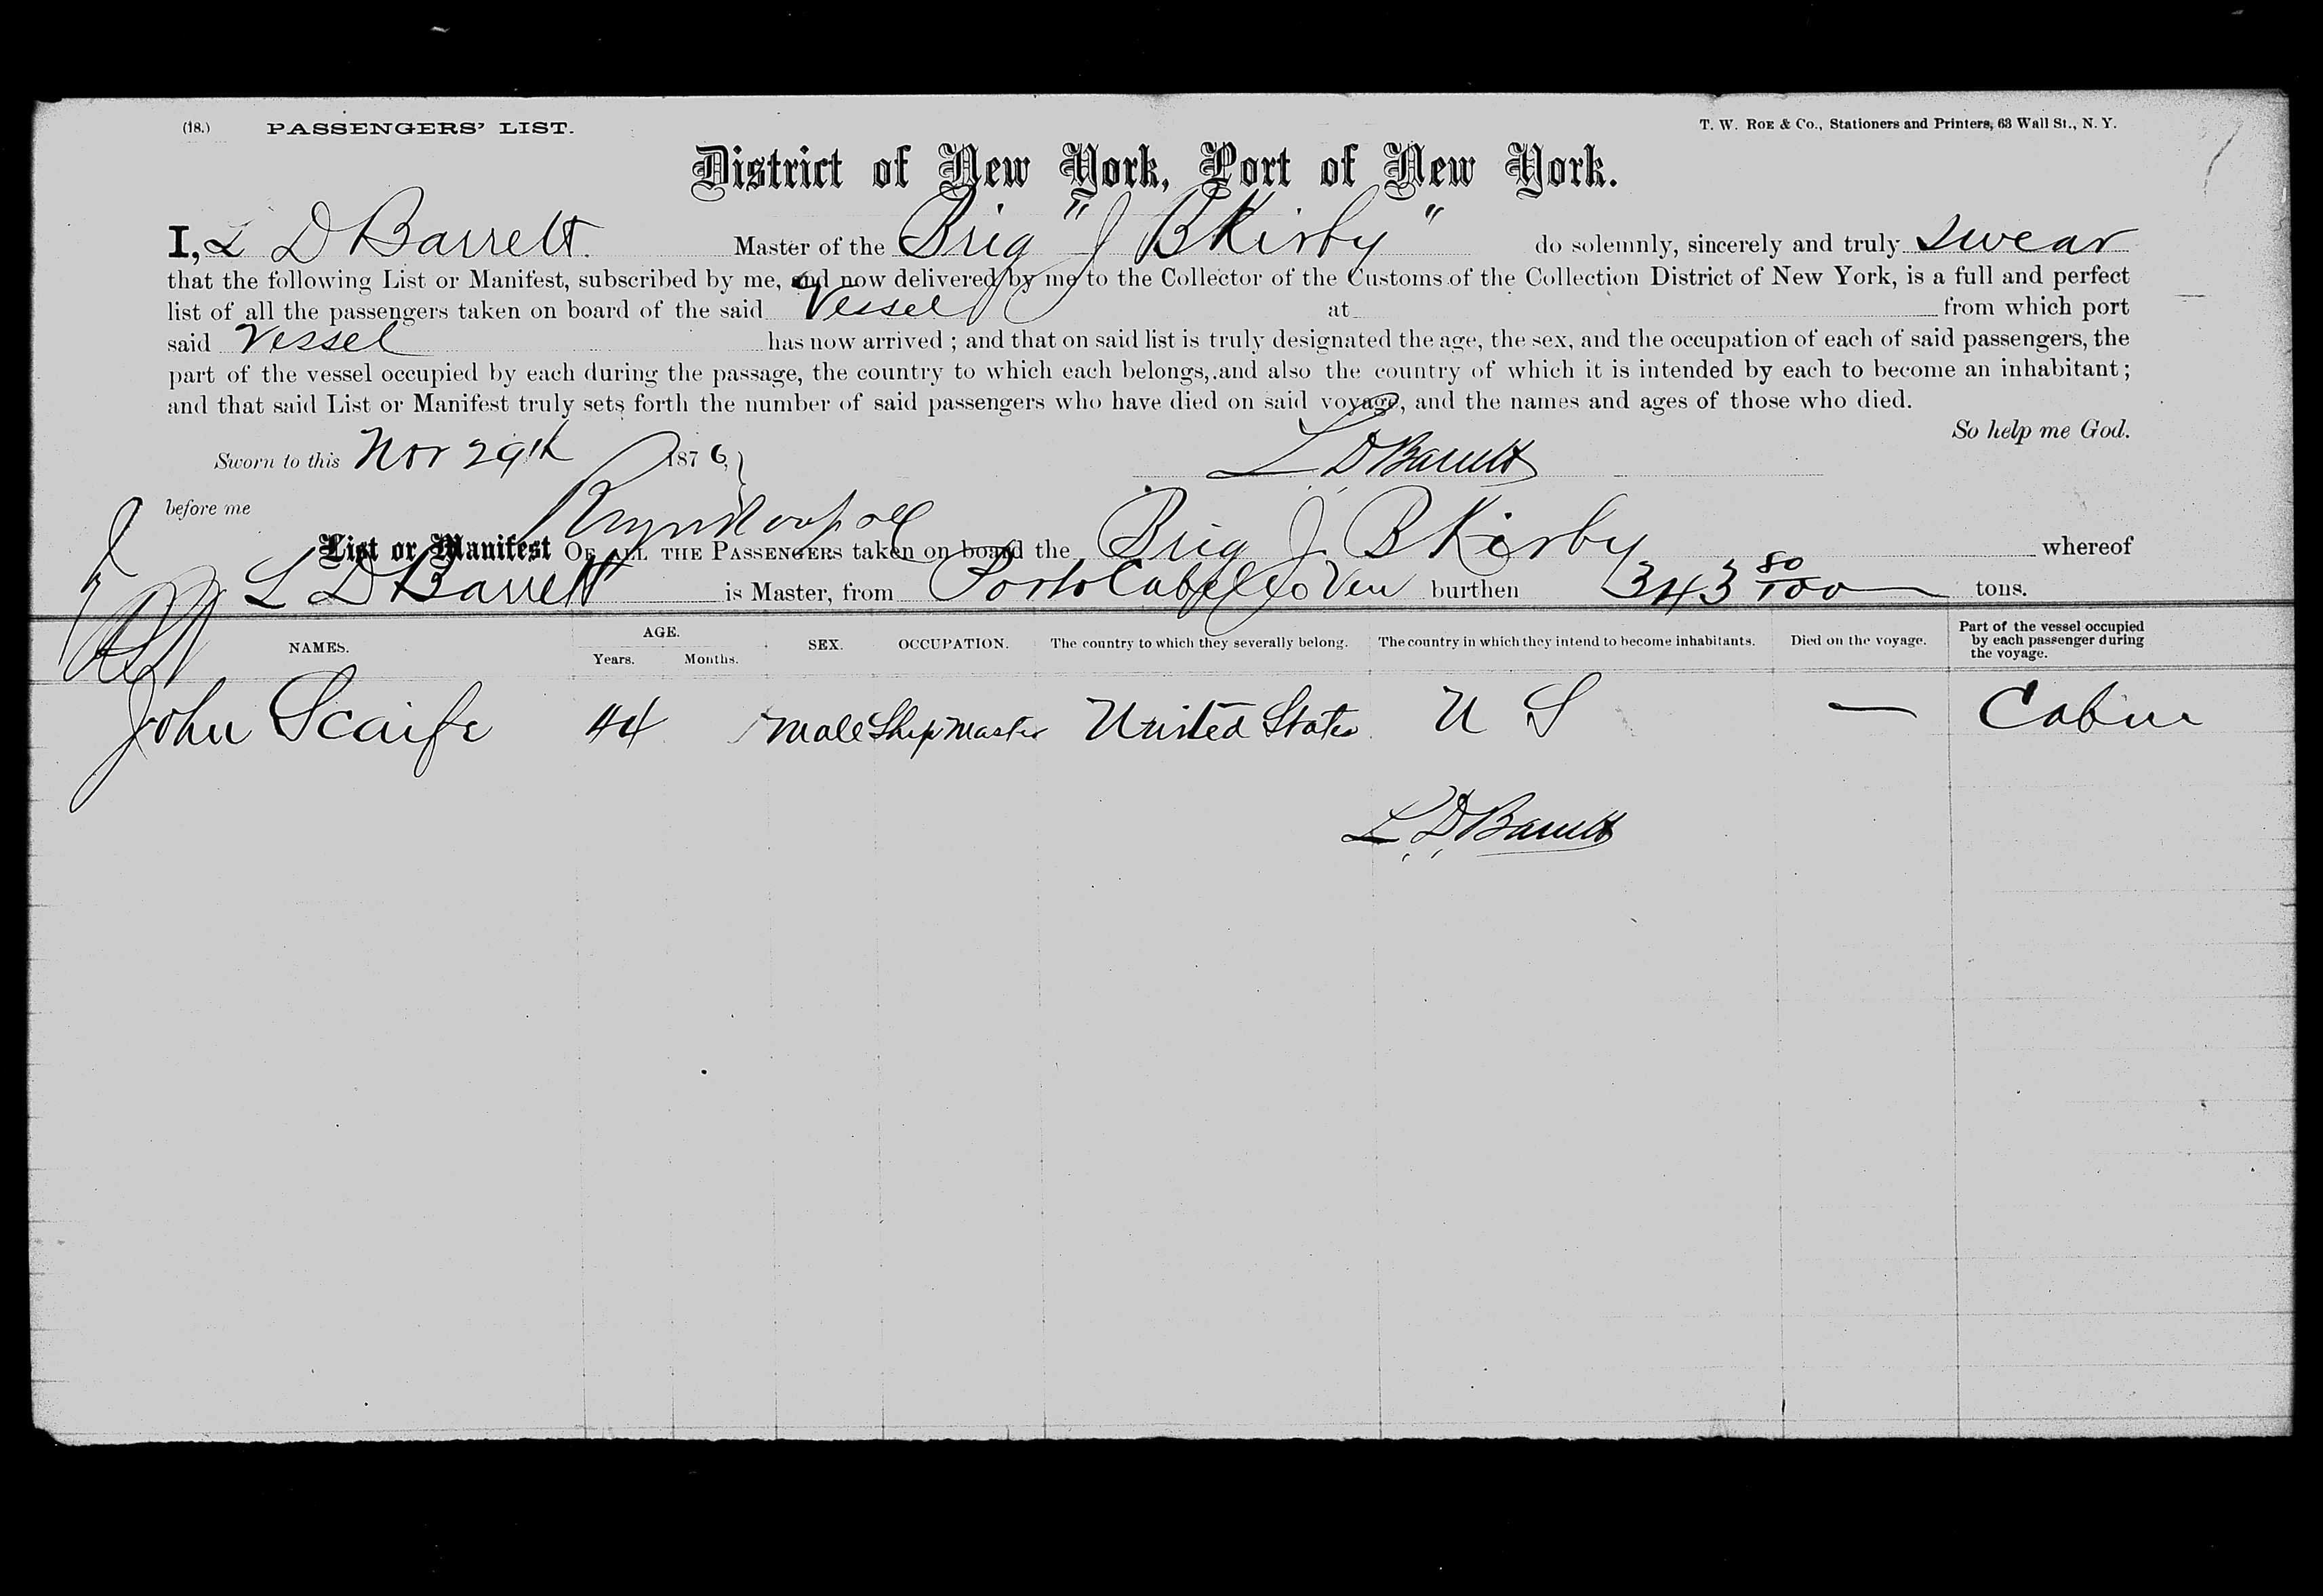 (18.) PASSENGERS' LIST. T. W. ROE & CO., Stationers and Printers, 63 Wall St., N. Y.
District of New York, Port of New York.
I, L D Barrett Master of the Brig "J B Kirby" do solemnly, sincerely and truly swear
that the following List or Manifest, subscribed by me, and now delivered by me to the Collector of the Customs of the Collection District of New York, is a full and perfect
list of all the passengers taken on board of the said Vessel at from which port
said Vessel has now arrived ; and that on said list is truly designated the age, the sex, and the occupation of each of said passengers, the
part of the vessel occupied by each during the passage, the country to which each belongs, and also the country of which it is intended by each to become an inhabitant ;
and that said List or Manifest truly sets forth the number of said passengers who have died on said voyage, and the names and ages of those who died.
So help me God.
Sworn to this Nov 29th 1876, L D Barrett
before me
List or Manifest OF ALL THE PASSENGERS taken on board the Brig J B Kirby whereof
L D Barrett is Master, from Porto Cabello Ven burthen 343 80/100 tons.
NAMES. AGE. Years. Months. SEX. OCCUPATION. The country to which they severally belong. The country in which they intend to become inhabitants. Died on the voyage. Part of the vessel occupied by each passenger during the voyage.
John Scaife 44 male Ship Master United States U S — Cabin
L D Barrett